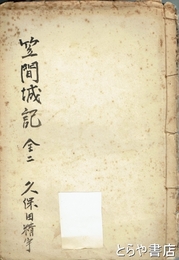 笠間城記 全二
久保田
とらや書店